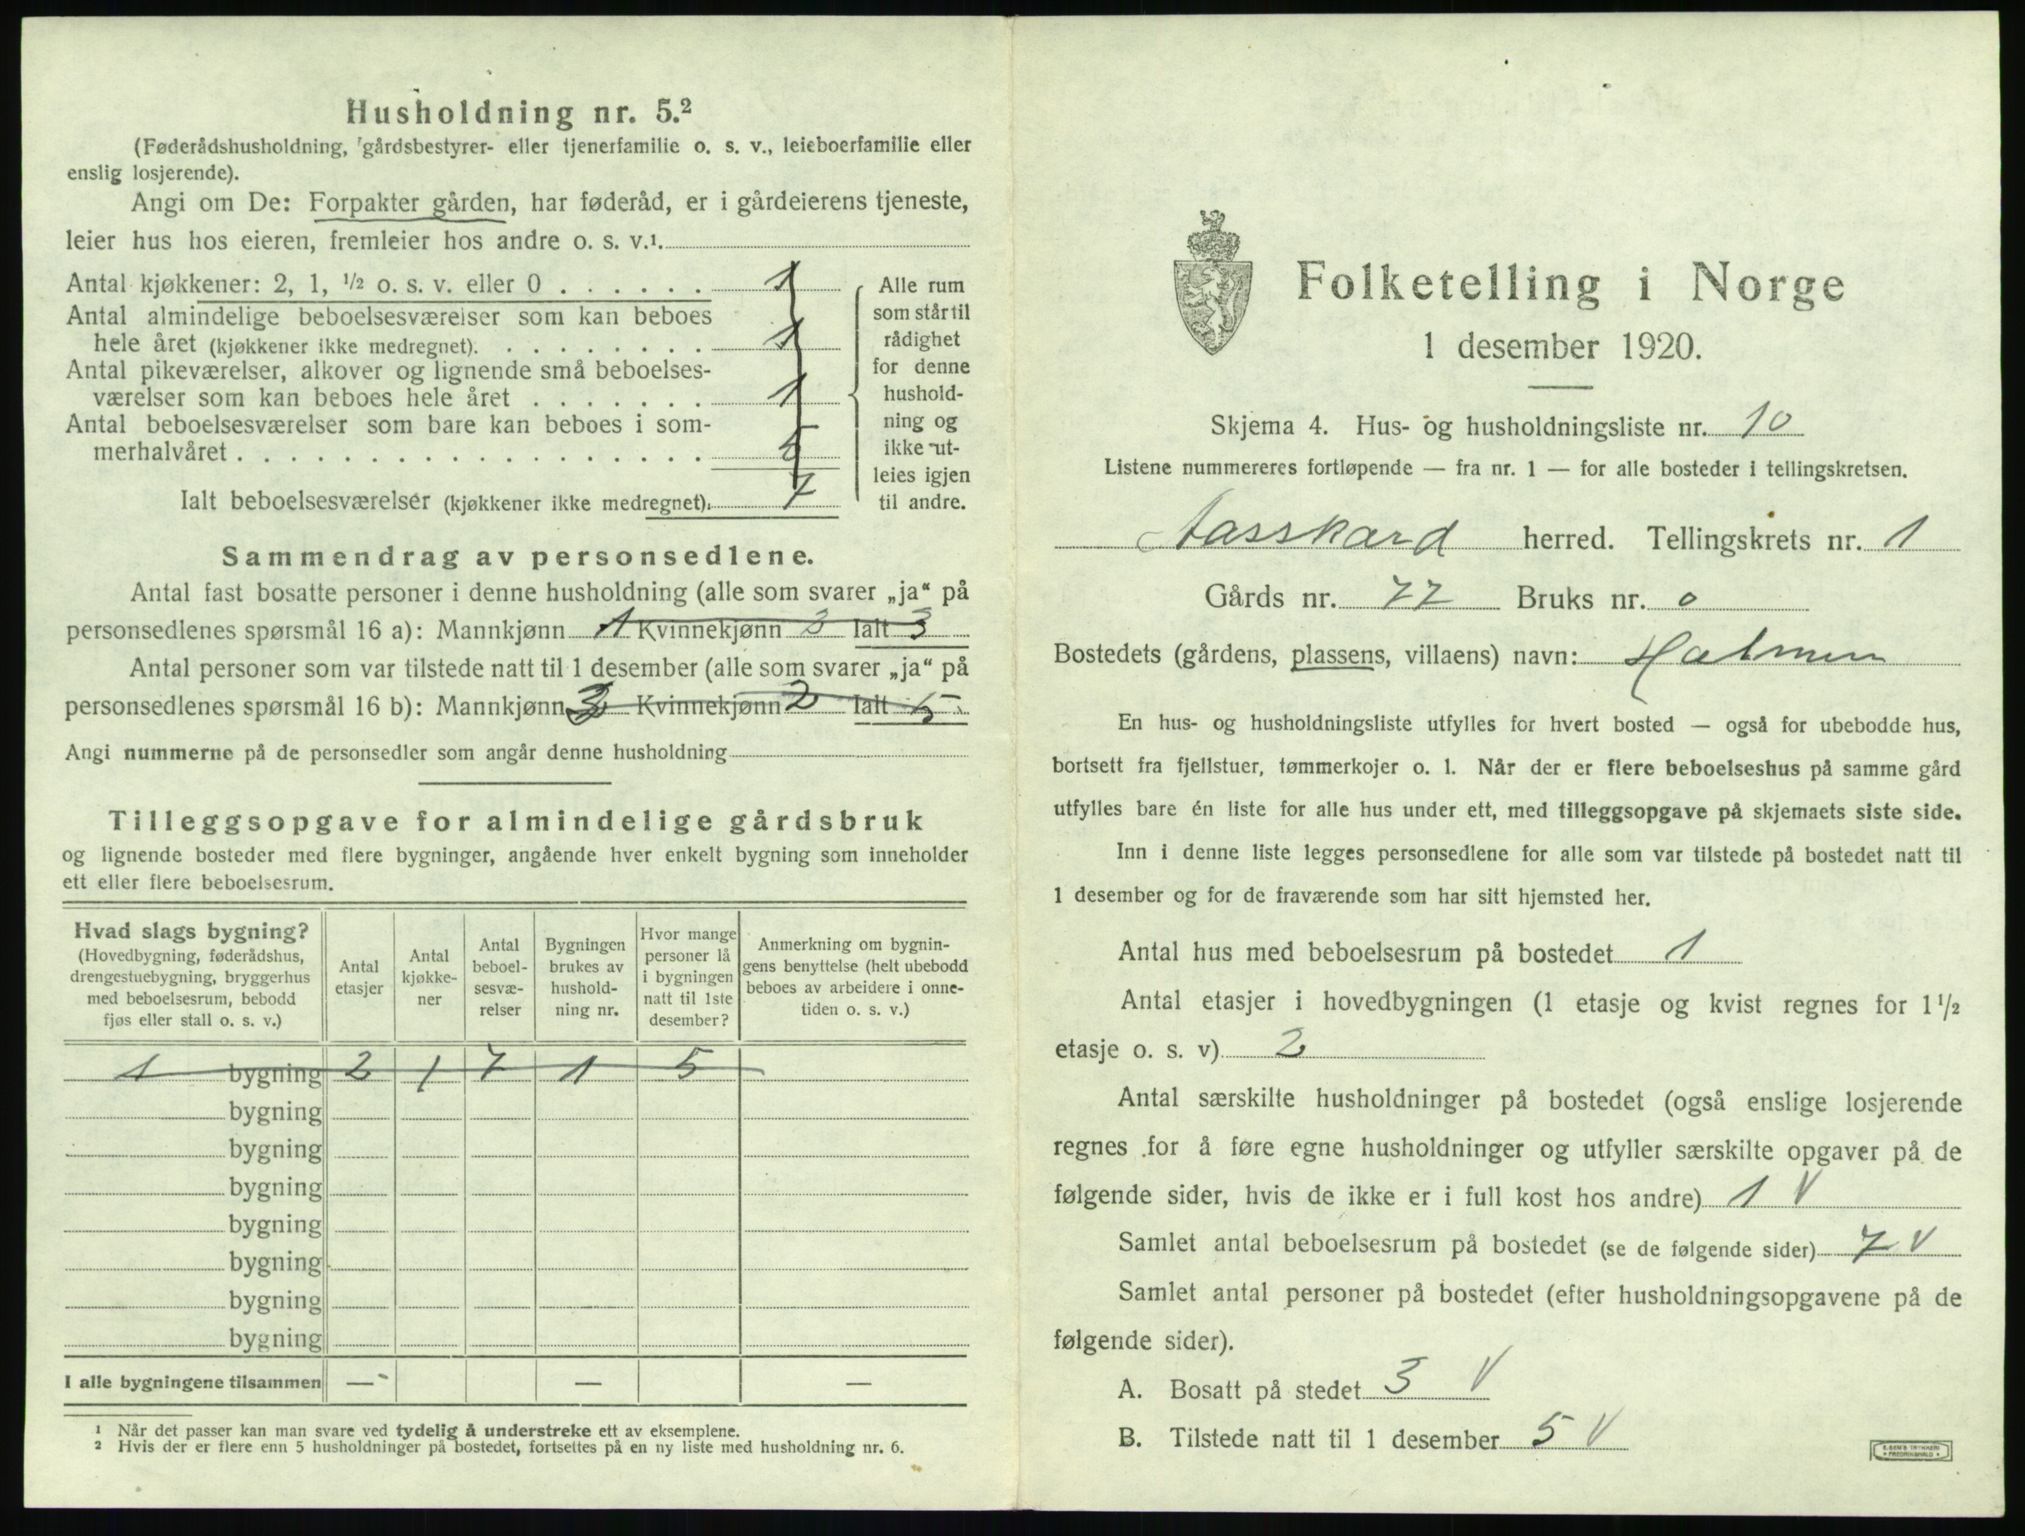 Husholdning nr. 5.²
(Føderådshusholdning, gårdsbestyrer- eller tjenerfamilie o. s. v., leieboerfamilie eller
enslig losjerende).
Angi om De: Forpakter gården, har føderåd, er i gårdeierens tjeneste,
leier hus hos eieren, fremleier hos andre o. s. v.¹
Antal kjøkkener: 2, 1, ½ o. s. v. eller 0 . . . . . . 1
Antal almindelige beboelsesværelser som kan beboes
hele året (kjøkkener ikke medregnet). . . . . . . . . 1
Antal pikeværelser, alkover og lignende små beboelses-
værelser som kan beboes hele året . . . . . . . 1
Antal beboelsesværelser som bare kan beboes i som-
merhalvåret . . . . . . . . . . . . . . . . . . 5
Ialt beboelsesværelser (kjøkkener ikke medregnet). 7
Alle rum
som står til
rådighet
for denne
hushold-
ning og
ikke ut-
leies igjen
til andre.
Sammendrag av personsedlene.
Antal fast bosatte personer i denne husholdning (alle som svarer „ja“ på
personsedlenes spørsmål 16 a): Mannkjønn 1 Kvinnekjønn 2 Ialt 3
Antal personer som var tilstede natt til 1 desember (alle som svarer „ja“ på
personsedlenes spørsmål 16 b): Mannkjønn 3 Kvinnekjønn 2 Ialt 5
Angi nummerne på de personsedler som angår denne husholdning
Tilleggsopgave for almindelige gårdsbruk
og lignende bosteder med flere bygninger, angående hver enkelt bygning som inneholder
ett eller flere beboelsesrum.
Hvad slags bygning?
(Hovedbygning, føderådshus,
drengestuebygning, bryggerhus
med beboelsesrum, bebodd
fjøs eller stall o. s. v.)
Antal
etasjer
Antal
kjøkke-
ner
Antal
beboel-
sesvæ-
relser
Bygningen
brukes av
hushold-
ning nr.
Hvor mange
personer lå
i bygningen
natt til 1ste
desember?
Anmerkning om bygnin-
gens benyttelse (helt ubebodd
beboes av arbeidere i onne-
tiden o. s. v.)
1 bygning 2 1 7 1 5
bygning
bygning
bygning
bygning
bygning
bygning
bygning
I alle bygningene tilsammen — — —
¹ Når det passer kan man svare ved tydelig å understreke ett av eksemplene.
² Hvis der er flere enn 5 husholdninger på bostedet, fortsettes på en ny liste med husholdning nr. 6.
Folketelling i Norge
1 desember 1920.
Skjema 4. Hus- og husholdningsliste nr. 10
Listene nummereres fortløpende — fra nr. 1 — for alle bosteder i tellingskretsen.
Aasskard herred. Tellingskrets nr. 1
Gårds nr. 77 Bruks nr. 0
Bostedets (gårdens, plassens, villaens) navn: Holmen
En hus- og husholdningsliste utfylles for hvert bosted — også for ubebodde hus,
bortsett fra fjellstuer, tømmerkojer o. l. Når der er flere beboelseshus på samme gård
utfylles bare én liste for alle hus under ett, med tilleggsopgave på skjemaets siste side.
Inn i denne liste legges personsedlene for alle som var tilstede på bostedet natt til
1 desember og for de fraværende som har sitt hjemsted her.
Antal hus med beboelsesrum på bostedet 1
Antal etasjer i hovedbygningen (1 etasje og kvist regnes for 1½
etasje o. s. v) 2
Antal særskilte husholdninger på bostedet (også enslige losjerende
regnes for å føre egne husholdninger og utfyller særskilte opgaver på de
følgende sider, hvis de ikke er i full kost hos andre) 1 V
Samlet antal beboelsesrum på bostedet (se de følgende sider) 7 V
Samlet antal personer på bostedet (efter husholdningsopgavene på de
følgende sider).
A. Bosatt på stedet 3 V
B. Tilstede natt til 1 desember 5 V